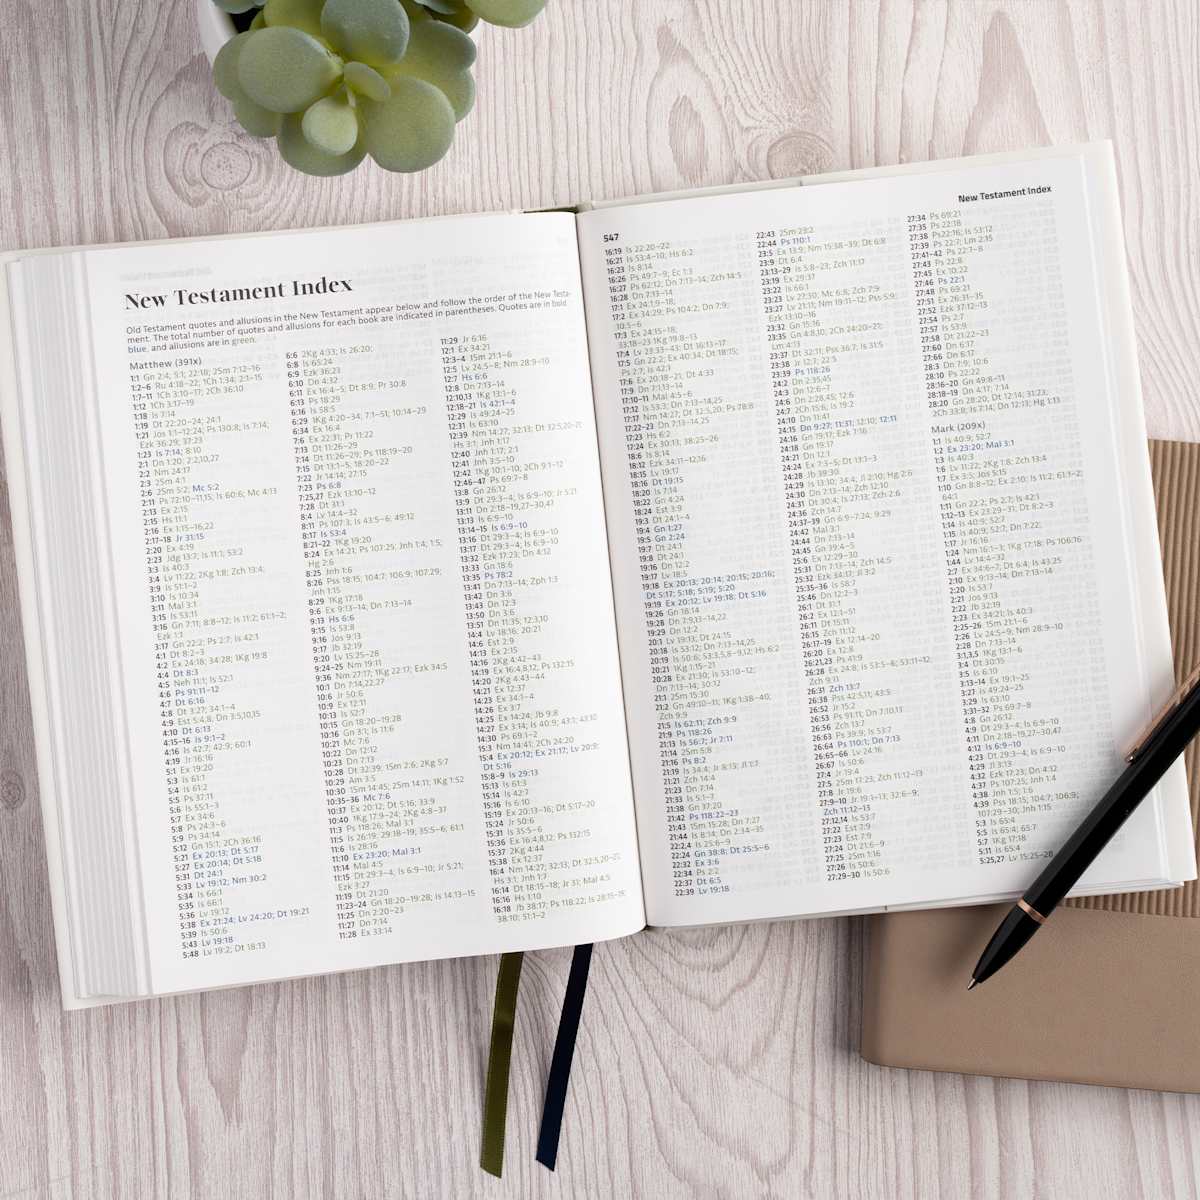 New Testament Index
Old Testament quotes and allusions in the New Testament appear below and follow the order of the New Testa-
ment. The total number of quotes and allusions for each book are indicated in parentheses. Quotes are in bold
blue, and allusions are in green.
Matthew (391x)
1:1 Gn 2:4; 5:1; 22:18; 2Sm 7:12–16
1:2–6 Ru 4:18–22; 1Ch 1:34; 2:1–15
1:7–11 1Ch 3:10–17; 2Ch 36:10
1:12 1Ch 3:17–19
1:18 Is 7:14
1:19 Dt 22:20–24; 24:1
1:21 Jos 1:1–12:24; Ps 130:8; Is 7:14;
Ezk 36:29; 37:23
1:23 Is 7:14; 8:10
2:1 Dn 1:20; 2:2,10,27
2:2 Nm 24:17
2:3 2Sm 4:1
2:6 2Sm 5:2; Mc 5:2
2:11 Ps 72:10–11,15; Is 60:6; Mc 4:13
2:13 Ex 2:15
2:15 Hs 11:1
2:16 Ex 1:15–16,22
2:17–18 Jr 31:15
2:20 Ex 4:19
2:23 Jdg 13:7; Is 11:1; 53:2
3:3 Is 40:3
3:4 Lv 11:22; 2Kg 1:8; Zch 13:4;
3:9 Is 51:1–2
3:10 Is 10:34
3:11 Mal 3:1
3:15 Is 53:11
3:16 Gn 7:11; 8:8–12; Is 11:2; 61:1–2;
Ezk 1:1
3:17 Gn 22:2; Ps 2:7; Is 42:1
4:1 Dt 8:2–3
4:2 Ex 24:18; 34:28; 1Kg 19:8
4:4 Dt 8:3
4:5 Neh 11:1; Is 52:1
4:6 Ps 91:11–12
4:7 Dt 6:16
4:8 Dt 3:27; 34:1–4
4:9 Est 5:4,8; Dn 3:5,10,15
4:10 Dt 6:13
4:15–16 Is 9:1–2
4:16 Is 42:7; 42:9; 60:1
4:19 Jr 16:16
5:1 Ex 19:20
5:3 Is 61:1
5:4 Is 61:2
5:5 Ps 37:11
5:6 Is 55:1–3
5:7 Ex 34:6
5:8 Ps 24:3–6
5:9 Ps 34:14
5:12 Gn 15:1; 2Ch 36:16
5:21 Ex 20:13; Dt 5:17
5:27 Ex 20:14; Dt 5:18
5:31 Dt 24:1
5:33 Lv 19:12; Nm 30:2
5:34 Is 66:1
5:35 Is 66:1
5:36 Lv 19:12
5:38 Ex 21:24; Lv 24:20; Dt 19:21
5:39 Is 50:6
5:43 Lv 19:18
5:48 Lv 19:2; Dt 18:13
6:6 2Kg 4:33; Is 26:20;
6:8 Is 65:24
6:9 Ezk 36:23
6:10 Dn 4:32
6:11 Ex 16:4–5; Dt 8:9; Pr 30:8
6:13 Ps 18:29
6:16 Is 58:5
6:29 1Kg 4:20–34; 7:1–51; 10:14–29
6:34 Ex 16:4
7:6 Ex 22:31; Pr 11:22
7:13 Dt 11:26–29
7:14 Dt 11:26–29; Ps 118:19–20
7:15 Dt 13:1–5; 18:20–22
7:22 Jr 14:14; 27:15
7:23 Ps 6:8
7:25,27 Ezk 13:10–12
7:28 Dt 31:1
8:4 Lv 14:4–32
8:11 Ps 107:3; Is 43:5–6; 49:12
8:17 Is 53:4
8:21–22 1Kg 19:20
8:24 Ex 14:21; Ps 107:25; Jnh 1:4, 1:5;
Hg 2:6
8:25 Jnh 1:6
8:26 Pss 18:15; 104:7; 106:9; 107:29;
Jnh 1:15
8:29 1Kg 17:18
9:6 Ex 9:13–14; Dn 7:13–14
9:13 Hs 6:6
9:15 Is 53:8
9:16 Jos 9:13
9:17 Jb 32:19
9:20 Lv 15:25–28
9:24–25 Nm 19:11
9:36 Nm 27:17; 1Kg 22:17; Ezk 34:5
10:1 Dn 7:14,22,27
10:6 Jr 50:6
10:9 Ex 12:11
10:13 Is 52:7
10:15 Gn 18:20–19:28
10:16 Gn 3:1; Is 11:6
10:21 Mc 7:6
10:22 Dn 12:12
10:23 Dn 7:13
10:28 Dt 32:39; 1Sm 2:6; 2Kg 5:7
10:29 Am 3:5
10:30 1Sm 14:45; 2Sm 14:11; 1Kg 1:52
10:35–36 Mc 7:6
10:37 Ex 20:12; Dt 5:16; 33:9
10:40 1Kg 17:9–24; 2Kg 4:8–37
11:3 Ps 118:26; Mal 3:1
11:5 Is 26:19; 29:18–19; 35:5–6; 61:1
11:6 Is 28:16
11:10 Ex 23:20; Mal 3:1
11:14 Mal 4:5
11:15 Dt 29:3–4; Is 6:9–10; Jr 5:21;
Ezk 3:27
11:19 Dt 21:20
11:23–24 Gn 18:20–19:28; Is 14:13–15
11:25 Dn 2:20–23
11:27 Dn 7:14
11:28 Ex 33:14
11:29 Jr 6:16
12:1 Ex 34:21
12:3–4 1Sm 21:1–6
12:5 Lv 24:5–8; Nm 28:9–10
12:7 Hs 6:6
12:8 Dn 7:13–14
12:10,13 1Kg 13:1–6
12:18–21 Is 42:1–4
12:29 Is 49:24–25
12:31 Is 63:10
12:39 Nm 14:27; 32:13; Dt 32:5,20–21;
Hs 3:1; Jnh 1:17
12:40 Jnh 1:17; 2:1
12:41 Jnh 3:5–10
12:42 1Kg 10:1–10; 2Ch 9:1–12
12:46–47 Ps 69:7–8
13:8 Gn 26:12
13:9 Dt 29:3–4; Is 6:9–10; Jr 5:21
13:11 Dn 2:18–19,27–30,47
13:13 Is 6:9–10
13:14–15 Is 6:9–10
13:16 Dt 29:3–4; Is 6:9–10
13:17 Dt 29:3–4; Is 6:9–10
13:32 Ezk 17:23; Dn 4:12
13:33 Gn 18:6
13:35 Ps 78:2
13:41 Dn 7:13–14; Zph 1:3
13:42 Dn 3:6
13:43 Dn 12:3
13:50 Dn 3:6
13:51 Dn 11:35; 12:3,10
14:4 Lv 18:16; 20:21
14:6 Est 2:9
14:13 Ex 2:15
14:16 2Kg 4:42–43
14:19 Ex 16:4,8,12; Ps 132:15
14:20 2Kg 4:43–44
14:21 Ex 12:37
14:23 Ex 34:1–4
14:26 Ex 3:7
14:25 Ex 14:24; Jb 9:8
14:27 Ex 3:14; Is 40:9; 43:1; 43:10
14:30 Ps 69:1–2
15:3 Nm 14:41; 2Ch 24:20
15:4 Ex 20:12; Ex 21:17; Lv 20:9;
Dt 5:16
15:8–9 Is 29:13
15:13 Is 61:3
15:14 Is 42:7
15:16 Is 6:10
15:19 Ex 20:13–16; Dt 5:17–20
15:24 Jr 50:6
15:31 Is 35:5–6
15:36 Ex 16:4,8,12; Ps 132:15
15:37 2Kg 4:44
15:38 Ex 12:37
16:4 Nm 14:27; 32:13; Dt 32:5,20–21;
Hs 3:1; Jnh 1:7
16:14 Dt 18:15–18; Jr 31; Mal 4:5
16:16 Hs 1:10
16:18 Jb 38:17; Ps 118:22; Is 28:15–19;
38:10; 51:1–2
547
New Testament Index
16:19 Is 22:20–22
16:21 Is 53:4–10; Hs 6:2
16:23 Is 8:14
16:26 Ps 49:7–9; Ec 1:3
16:27 Ps 62:12; Dn 7:13–14; Zch 14:5
16:28 Dn 7:13–14
17:1 Ex 24:1,9–18;
17:2 Ex 34:29; Ps 104:2; Dn 7:9;
10:5–6
17:3 Ex 24:15–18;
33:18–23 1Kg 19:8–13
17:4 Lv 23:33–43; Dt 16:13–17
17:5 Gn 22:2; Ex 40:34; Dt 18:15;
Ps 2:7; Is 42:1
17:6 Ex 20:18–21; Dt 4:33
17:9 Dn 7:13–14
17:10–11 Mal 4:5–6
17:12 Is 53:3; Dn 7:13–14,25
17:17 Nm 14:27; Dt 32:5,20; Ps 78:8
17:22–23 Dn 7:13–14,25
17:23 Hs 6:2
17:24 Ex 30:13; 38:25–26
18:6 Is 8:14
18:12 Ezk 34:11–12,16
18:15 Lv 19:17
18:16 Dt 19:15
18:20 Is 7:14
18:22 Gn 4:24
18:24 Est 3:9
19:3 Dt 24:1–4
19:4 Gn 1:27
19:5 Gn 2:24
19:7 Dt 24:1
19:8 Dt 24:1
19:16 Dn 12:2
19:17 Lv 18:5
19:18 Ex 20:13; 20:14; 20:15; 20:16;
Dt 5:17; 5:18; 5:19; 5:20
19:19 Ex 20:12; Lv 19:18; Dt 5:16
19:26 Gn 18:14
19:28 Dn 7:9,13–14,22
19:29 Dn 12:2
20:1 Lv 19:13; Dt 24:15
20:18 Is 53:12; Dn 7:13–14,25
20:19 Is 50:6; 53:3,5,8–9,12; Hs 6:2
20:21 1Kg 1:15–21
20:28 Ex 21:30; Is 53:10–12;
Dn 7:13–14; 30:12
21:1 2Sm 15:30
21:2 Gn 49:10–11; 1Kg 1:38–40;
Zch 9:9
21:5 Is 62:11; Zch 9:9
21:9 Ps 118:26
21:13 Is 56:7; Jr 7:11
21:14 2Sm 5:8
21:16 Ps 8:2
21:19 Is 34:4; Jr 8:13; Jl 1:7
21:21 Zch 14:4
21:23 Dn 7:14
21:33 Is 5:1–7
21:38 Gn 37:20
21:42 Ps 118:22–23
21:43 1Sm 15:28; Dn 7:27
21:44 Is 8:14; Dn 2:34–35
22:2,4 Is 25:6–9
22:24 Gn 38:8; Dt 25:5–6
22:32 Ex 3:6
22:34 Ps 2:2
22:37 Dt 6:5
22:39 Lv 19:18
22:43 2Sm 23:2
22:44 Ps 110:1
23:5 Ex 13:9; Nm 15:38–39; Dt 6:8
23:9 Dt 6:4
23:13–29 Is 5:8–23; Zch 11:17
23:19 Ex 29:37
23:22 Is 66:1
23:23 Lv 27:30; Mc 6:8; Zch 7:9
23:27 Lv 21:11; Nm 19:11–12; Pss 5:9;
Ezk 13:10–16
23:32 Gn 15:16
23:35 Gn 4:8,10; 2Ch 24:20–21;
Lm 4:13
23:37 Dt 32:11; Pss 36:7; Is 31:5
23:38 Jr 12:7; 22:5
23:39 Ps 118:26
24:2 Dn 2:35,45
24:3 Dn 12:6–7
24:6 Dn 2:28,45; 12:6
24:7 2Ch 15:6; Is 19:2
24:10 Dn 11:41
24:15 Dn 9:27; 11:31; 12:10; 12:11
24:16 Gn 19:17; Ezk 7:16
24:18 Gn 19:17
24:21 Dn 12:1
24:24 Ex 7:3–5; Dt 13:1–3
24:28 Jb 39:30
24:29 Is 13:10; 34:4; Jl 2:10; Hg 2:6
24:30 Dn 7:13–14; Zch 12:10
24:31 Dt 30:4; Is 27:13; Zch 2:6
24:36 Zch 14:7
24:37–39 Gn 6:9–7:24; 9:29
24:42 Mal 3:1
24:44 Dn 7:13–14
24:45 Gn 39:4–5
25:6 Ex 12:29–30
25:31 Dn 7:13–14; Zch 14:5
25:32 Ezk 34:17; Jl 3:2
25:35–36 Is 58:7
25:46 Dn 12:2–3
26:1 Dt 31:1
26:2 Ex 12:1–51
26:11 Dt 15:11
26:15 Zch 11:12
26:17–19 Ex 12:14–20
26:20 Ex 12:8
26:21,23 Ps 41:9
26:28 Ex 24:8; Is 53:5–6; 53:11–12;
Zch 9:11
26:31 Zch 13:7
26:38 Pss 42:5,11; 43:5
26:52 Jr 15:2
26:53 Ps 91:11; Dn 7:10,13
26:56 Zch 13:7
26:63 Ps 39:9; Is 53:7
26:64 Ps 110:1; Dn 7:13
26:65–66 Lv 24:16
26:67 Is 50:6
27:4 Jr 19:4
27:5 2Sm 17:23; Zch 11:12–13
27:8 Jr 19:6
27:9–10 Jr 19:1–13; 32:6–9;
Zch 11:12–13
27:12,14 Is 53:7
27:22 Est 7:9
27:23 Est 7:9
27:24 Dt 21:6–9
27:25 2Sm 1:16
27:26 Is 50:6
27:29–30 Is 50:6
27:34 Ps 69:21
27:35 Ps 22:18
27:38 Ps22:16; Is 53:12
27:39 Ps 22:7; Lm 2:15
27:41–42 Ps 22:7–8
27:43 Ps 22:8
27:45 Ex 10:22
27:46 Ps 22:1
27:48 Ps 69:21
27:51 Ex 26:31–35
27:52 Ezk 37:12–13
27:54 Ps 2:7
27:57 Is 53:9
27:58 Dt 21:22–23
27:60 Dn 6:17
27:66 Dn 6:17
28:3 Dn 7:9; 10:6
28:10 Ps 22:22
28:16–20 Gn 49:8–11
28:18–19 Dn 4:17; 7:14
28:20 Gn 28:20; Dt 12:14; 31:23;
2Ch 33:8; Is 7:14; Dn 12:13; Hg 1:13
Mark (209x)
1:1 Is 40:9, 52:7
1:2 Ex 23:20; Mal 3:1
1:3 Is 40:3
1:6 Lv 11:22; 2Kg 1:8; Zch 13:4
1:7 Ex 3:5; Jos 5:15
1:10 Gn 8:8–12; Ex 2:10; Is 11:2; 61:1–2;
64:1
1:11 Gn 22:2; Ps 2:7; Is 42:1
1:12–13 Ex 23:29–31; Dt 8:2–3
1:14 Is 40:9; 52:7
1:15 Is 40:9; 52:7; Dn 7:22;
1:17 Jr 16:16
1:24 Nm 16:1–3; 1Kg 17:18; Ps 106:16
1:44 Lv 14:4–32
2:7 Ex 34:6–7; Dt 6:4; Is 43:25
2:10 Ex 9:13–14; Dn 7:13–14
2:20 Is 53:7
2:21 Jos 9:13
2:22 Jb 32:19
2:23 Ex 34:21; Is 40:3
2:25–26 1Sm 21:1–6
2:26 Lv 24:5–9, Nm 28:9–10
2:28 Dn 7:13–14
3:1,3,5 1Kg 13:1–6
3:4 Dt 30:15
3:5 Is 6:10
3:13–14 Ex 19:1–25
3:27 Is 49:24–25
3:29 Is 63:10
3:31–32 Ps 69:7–8
4:8 Gn 26:12
4:9 Dt 29:3–4; Is 6:9–10
4:11 Dn 2:18–19,27–30,47
4:12 Is 6:9–10
4:23 Dt 29:3–4; Is 6:9–10
4:29 Jl 3:13
4:32 Ezk 17:23; Dn 4:12
4:37 Ps 107:25; Jnh 1:4
4:38 Jnh 1:5; 1:6
4:39 Pss 18:15; 104:7; 106:9;
107:29–30; Jnh 1:15
5:3 Is 65:4
5:5 Is 65:4; 65:7
5:7 1Kg 17:18
5:11 Is 65:4
5:25,27 Lv 15:25–28